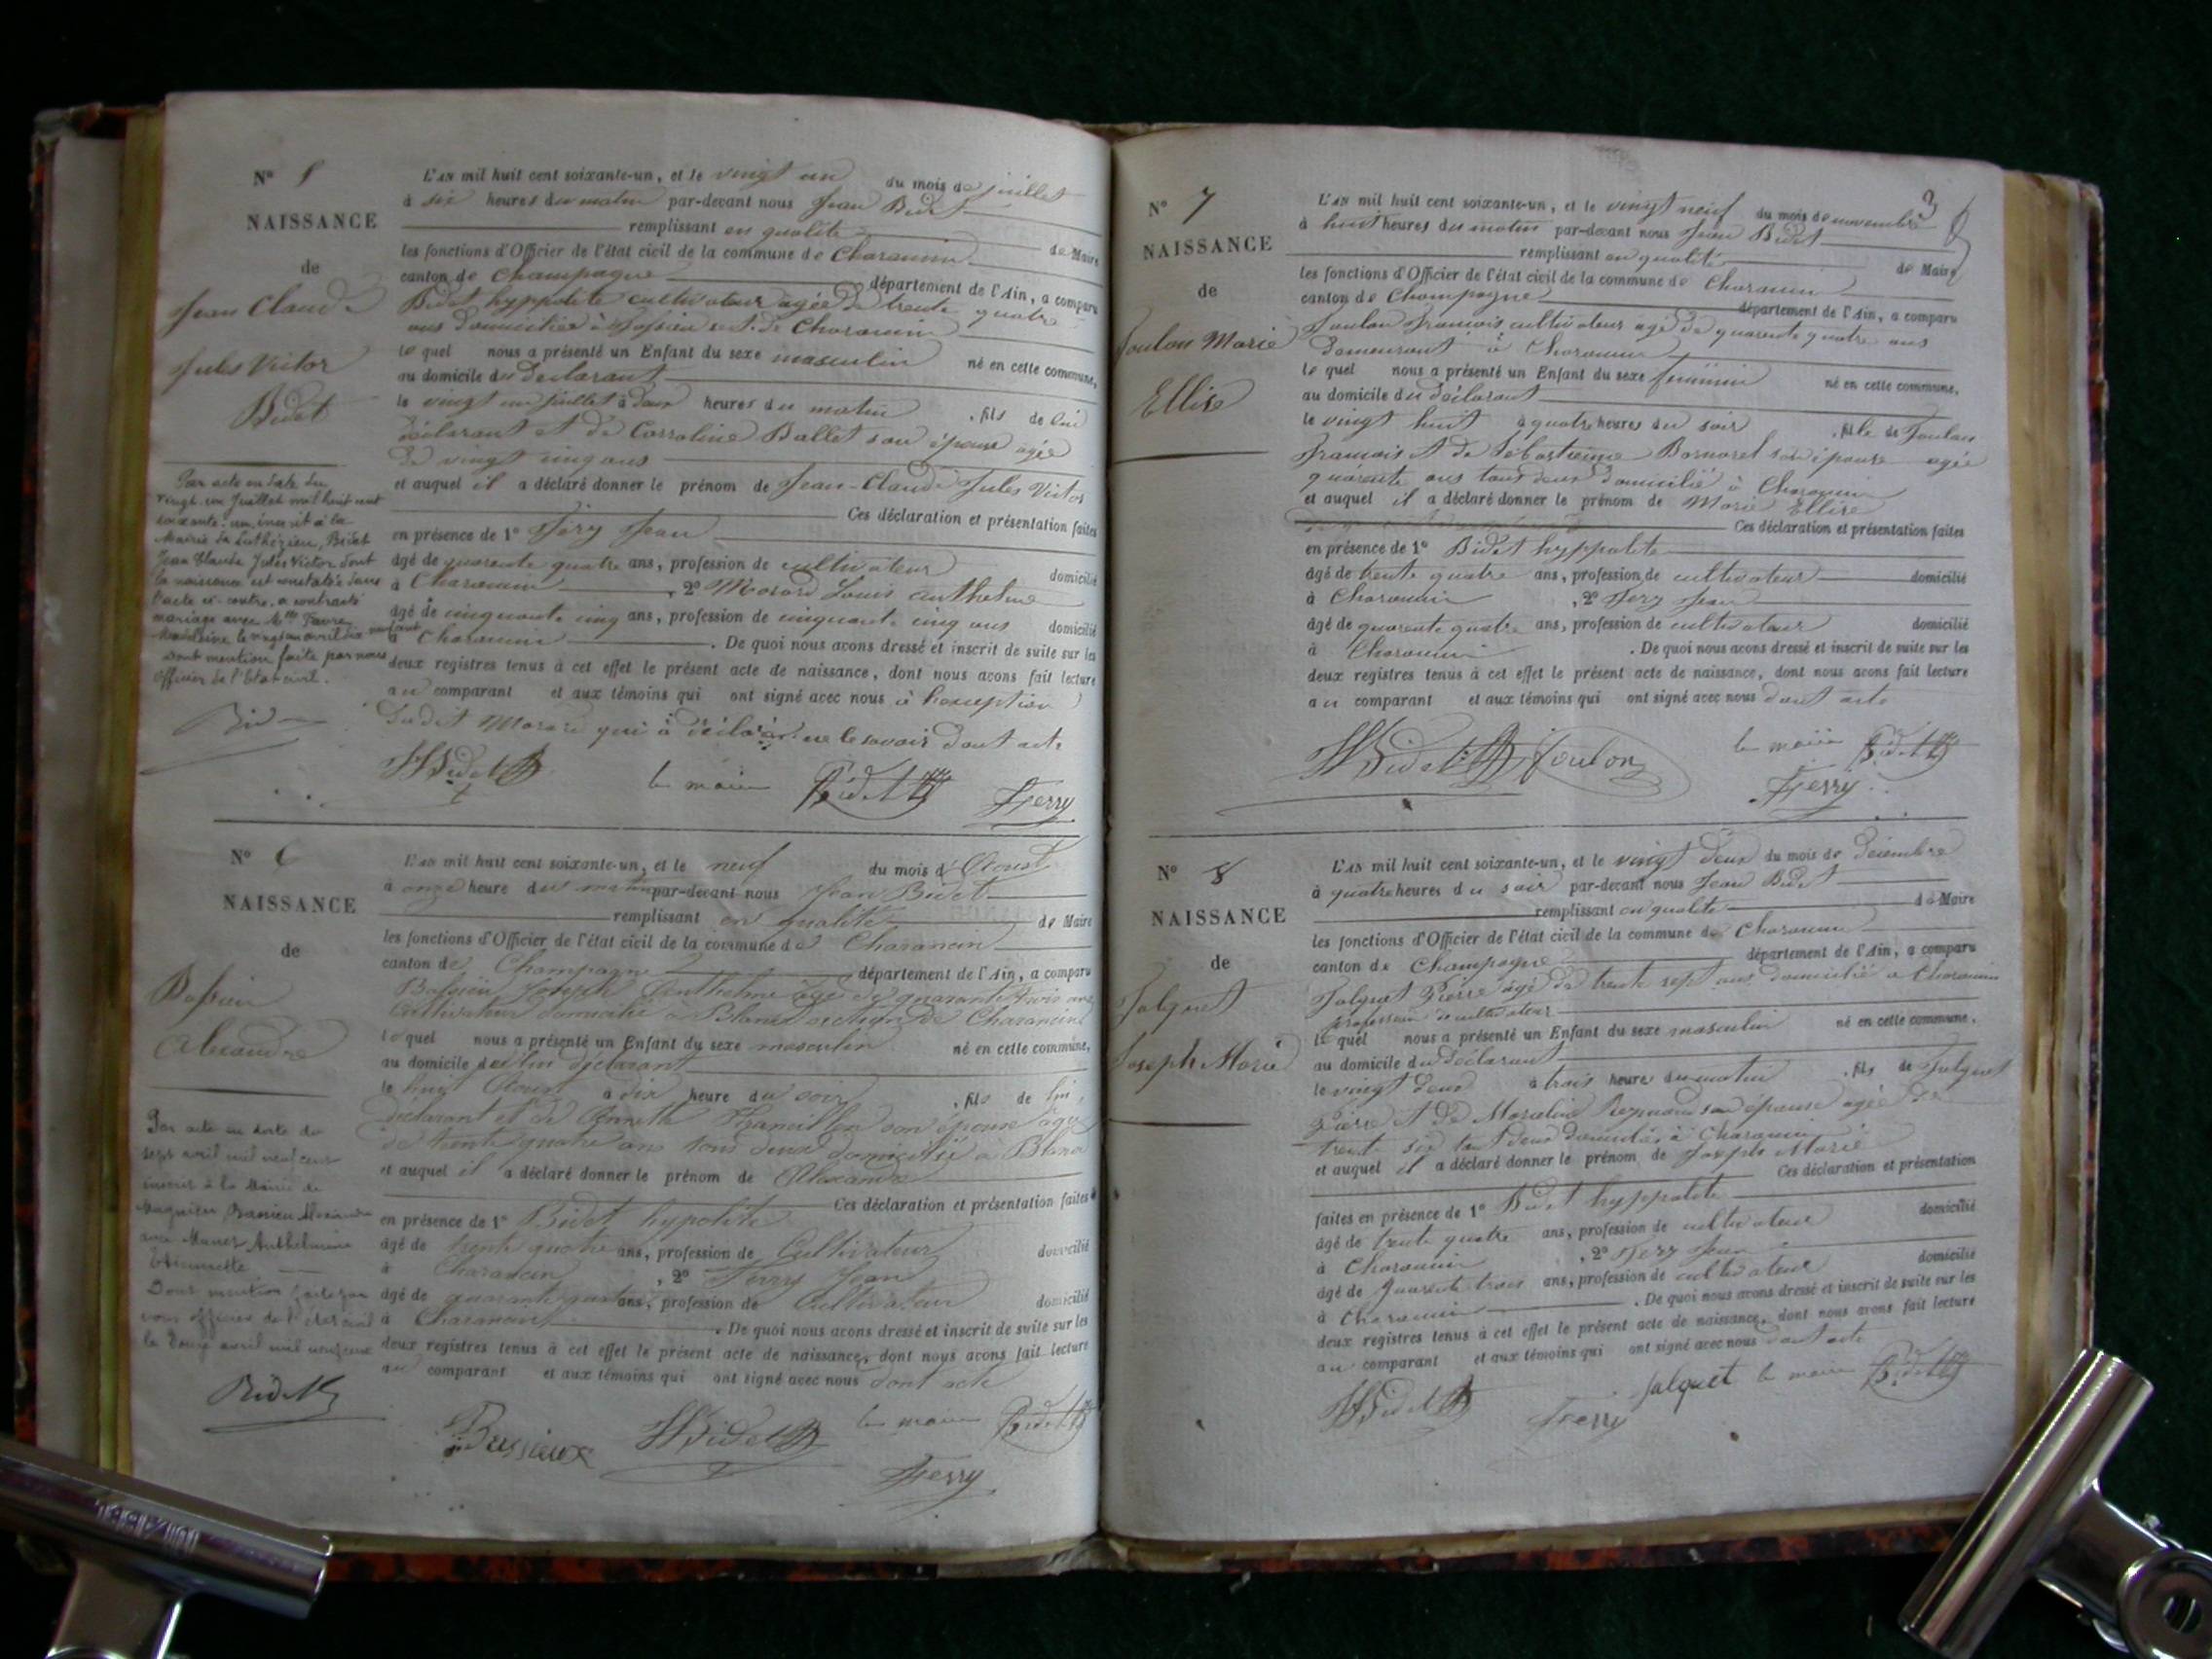 N° 5
NAISSANCE
de
Jean Claude
Jules Victor
Bidet
Par acte en date du
vingt un Juillet mil huit cent
soixante-un, inscrit à la
Mairie de Lothézieu, Bidet
Jean Claude Jules Victor dont
la naissance est constatée dans
l'acte ci-contre, a contracté
mariage avec Mlle Favre
dont mention faite par nous
Officier de l'Etat civil.
L'AN mil huit cent soixante-un, et le vingt un du mois de juillet
à six heures du matin par-devant nous Jean Bidet
remplissant en qualité de Maire
les fonctions d'Officier de l'état civil de la commune de Charancin
canton de Champagne département de l'Ain, a comparu
Bidet hyppolite cultivateur agée de trente quatre
ans domicilié à Charancin
le quel nous a présenté un Enfant du sexe masculin né en cette commune,
au domicile du déclarant
le vingt un juillet à deux heures du matin, fils de lui
déclarant et de Carroline Ballet son épouse agée
de vingt cinq ans
et auquel il a déclaré donner le prénom de Jean-Claude Jules Victor
Ces déclaration et présentation faites
en présence de 1° Féry Jean
âgé de quarente quatre ans, profession de cultivateur domicilié
à Charancin, 2° Morard Louis anthelme
âgé de cinquante cinq ans, profession de cinquante cinq ans domicilié
à Charancin. De quoi nous avons dressé et inscrit de suite sur les
deux registres tenus à cet effet le présent acte de naissance, dont nous avons fait lecture
au comparant et aux témoins qui ont signé avec nous à l'exception
dudit Morard qui à déclaré ne le savoir dont acte
HBidet le maire Bidet Ferry
N° 6
NAISSANCE
de
Bassieu
Alexandre
Par acte en date du
sept avril mil neuf cent
inscrit à la Mairie de
Bassieu Alexandre
avec Anthelmine
Dont mention faite par
nous officier de l'état civil
le douze avril mil neuf cent
Bidet
L'AN mil huit cent soixante-un, et le neuf du mois d'Aoust
à onze heure du matin par-devant nous Jean Bidet
remplissant en qualité de Maire
les fonctions d'Officier de l'état civil de la commune de Charancin
canton de Champagne département de l'Ain, a comparu
Bassieu Joseph Anthelme âgé de quarante trois ans
Cultivateur domicilié à Blanaz section de Charancin
le quel nous a présenté un Enfant du sexe masculin né en cette commune,
au domicile de lui déclarant
le huit Aoust à dix heure du soir, fils de lui
déclarant et de Annette son épouse agé
de trente quatre ans tous deux domicilié à Blanaz
et auquel il a déclaré donner le prénom de Alexandre
Ces déclaration et présentation faites
en présence de 1° Bidet hypolite
âgé de trente quatre ans, profession de Cultivateur domicilié
à Charancin, 2° Ferry Jean
âgé de quarante quatre ans, profession de Cultivateur domicilié
à Charancin. De quoi nous avons dressé et inscrit de suite sur les
deux registres tenus à cet effet le présent acte de naissance, dont nous avons fait lecture
au comparant et aux témoins qui ont signé avec nous dont acte
Bassieux HBidet le maire Bidet
Ferry
3
N° 7
NAISSANCE
de
Joulon Marie
Ellise
L'AN mil huit cent soixante-un, et le vingt neuf du mois de novembre
à huit heures du matin par-devant nous Jean Bidet
remplissant en qualité de Maire
les fonctions d'Officier de l'état civil de la commune de Charancin
canton de Champagne département de l'Ain, a comparu
Joulon François cultivateur agé de quarente quatre ans
demeurant à Charancin
le quel nous a présenté un Enfant du sexe féminin né en cette commune,
au domicile du déclarant
le vingt huit à quatre heures du soir, fille de Joulon
François et de Sébastienne Bornarel son épouse agée
quarente ans tous deux domicilié à Charancin
et auquel il a déclaré donner le prénom de Marie Ellise
Ces déclaration et présentation faites
en présence de 1° Bidet hyppolite
âgé de trente quatre ans, profession de cultivateur domicilié
à Charancin, 2° Ferry Jean
âgé de quarente quatre ans, profession de cultivateur domicilié
à Charancin. De quoi nous avons dressé et inscrit de suite sur les
deux registres tenus à cet effet le présent acte de naissance, dont nous avons fait lecture
au comparant et aux témoins qui ont signé avec nous dont acte
HBidet Joulon le maire Bidet
Ferry
N° 8
NAISSANCE
de
Jalguet
Joseph Marie
L'AN mil huit cent soixante-un, et le vingt deux du mois de décembre
à quatre heures du soir par-devant nous Jean Bidet
remplissant en qualité de Maire
les fonctions d'Officier de l'état civil de la commune de Charancin
canton de Champagne département de l'Ain, a comparu
Jalguet Pierre âgé de trente sept ans domicilié a Charancin
profession de cultivateur
le quel nous a présenté un Enfant du sexe masculin né en cette commune,
au domicile du déclarant
le vingt deux à trois heures du matin, fils de Jalguet
Pierre et de Marceline Reymond son épouse agée de
trente six tout deux domiciliés à Charancin
et auquel il a déclaré donner le prénom de Joseph Marie
Ces déclaration et présentation
faites en présence de 1° Bidet hyppolite
âgé de trente quatre ans, profession de cultivateur domicilié
à Charancin, 2° Ferry Jean
âgé de quarente trois ans, profession de cultivateur domicilié
à Charancin. De quoi nous avons dressé et inscrit de suite sur les
deux registres tenus à cet effet le présent acte de naissance, dont nous avons fait lecture
au comparant et aux témoins qui ont signé avec nous dont acte
HBidet Ferry Jalguet le maire Bidet